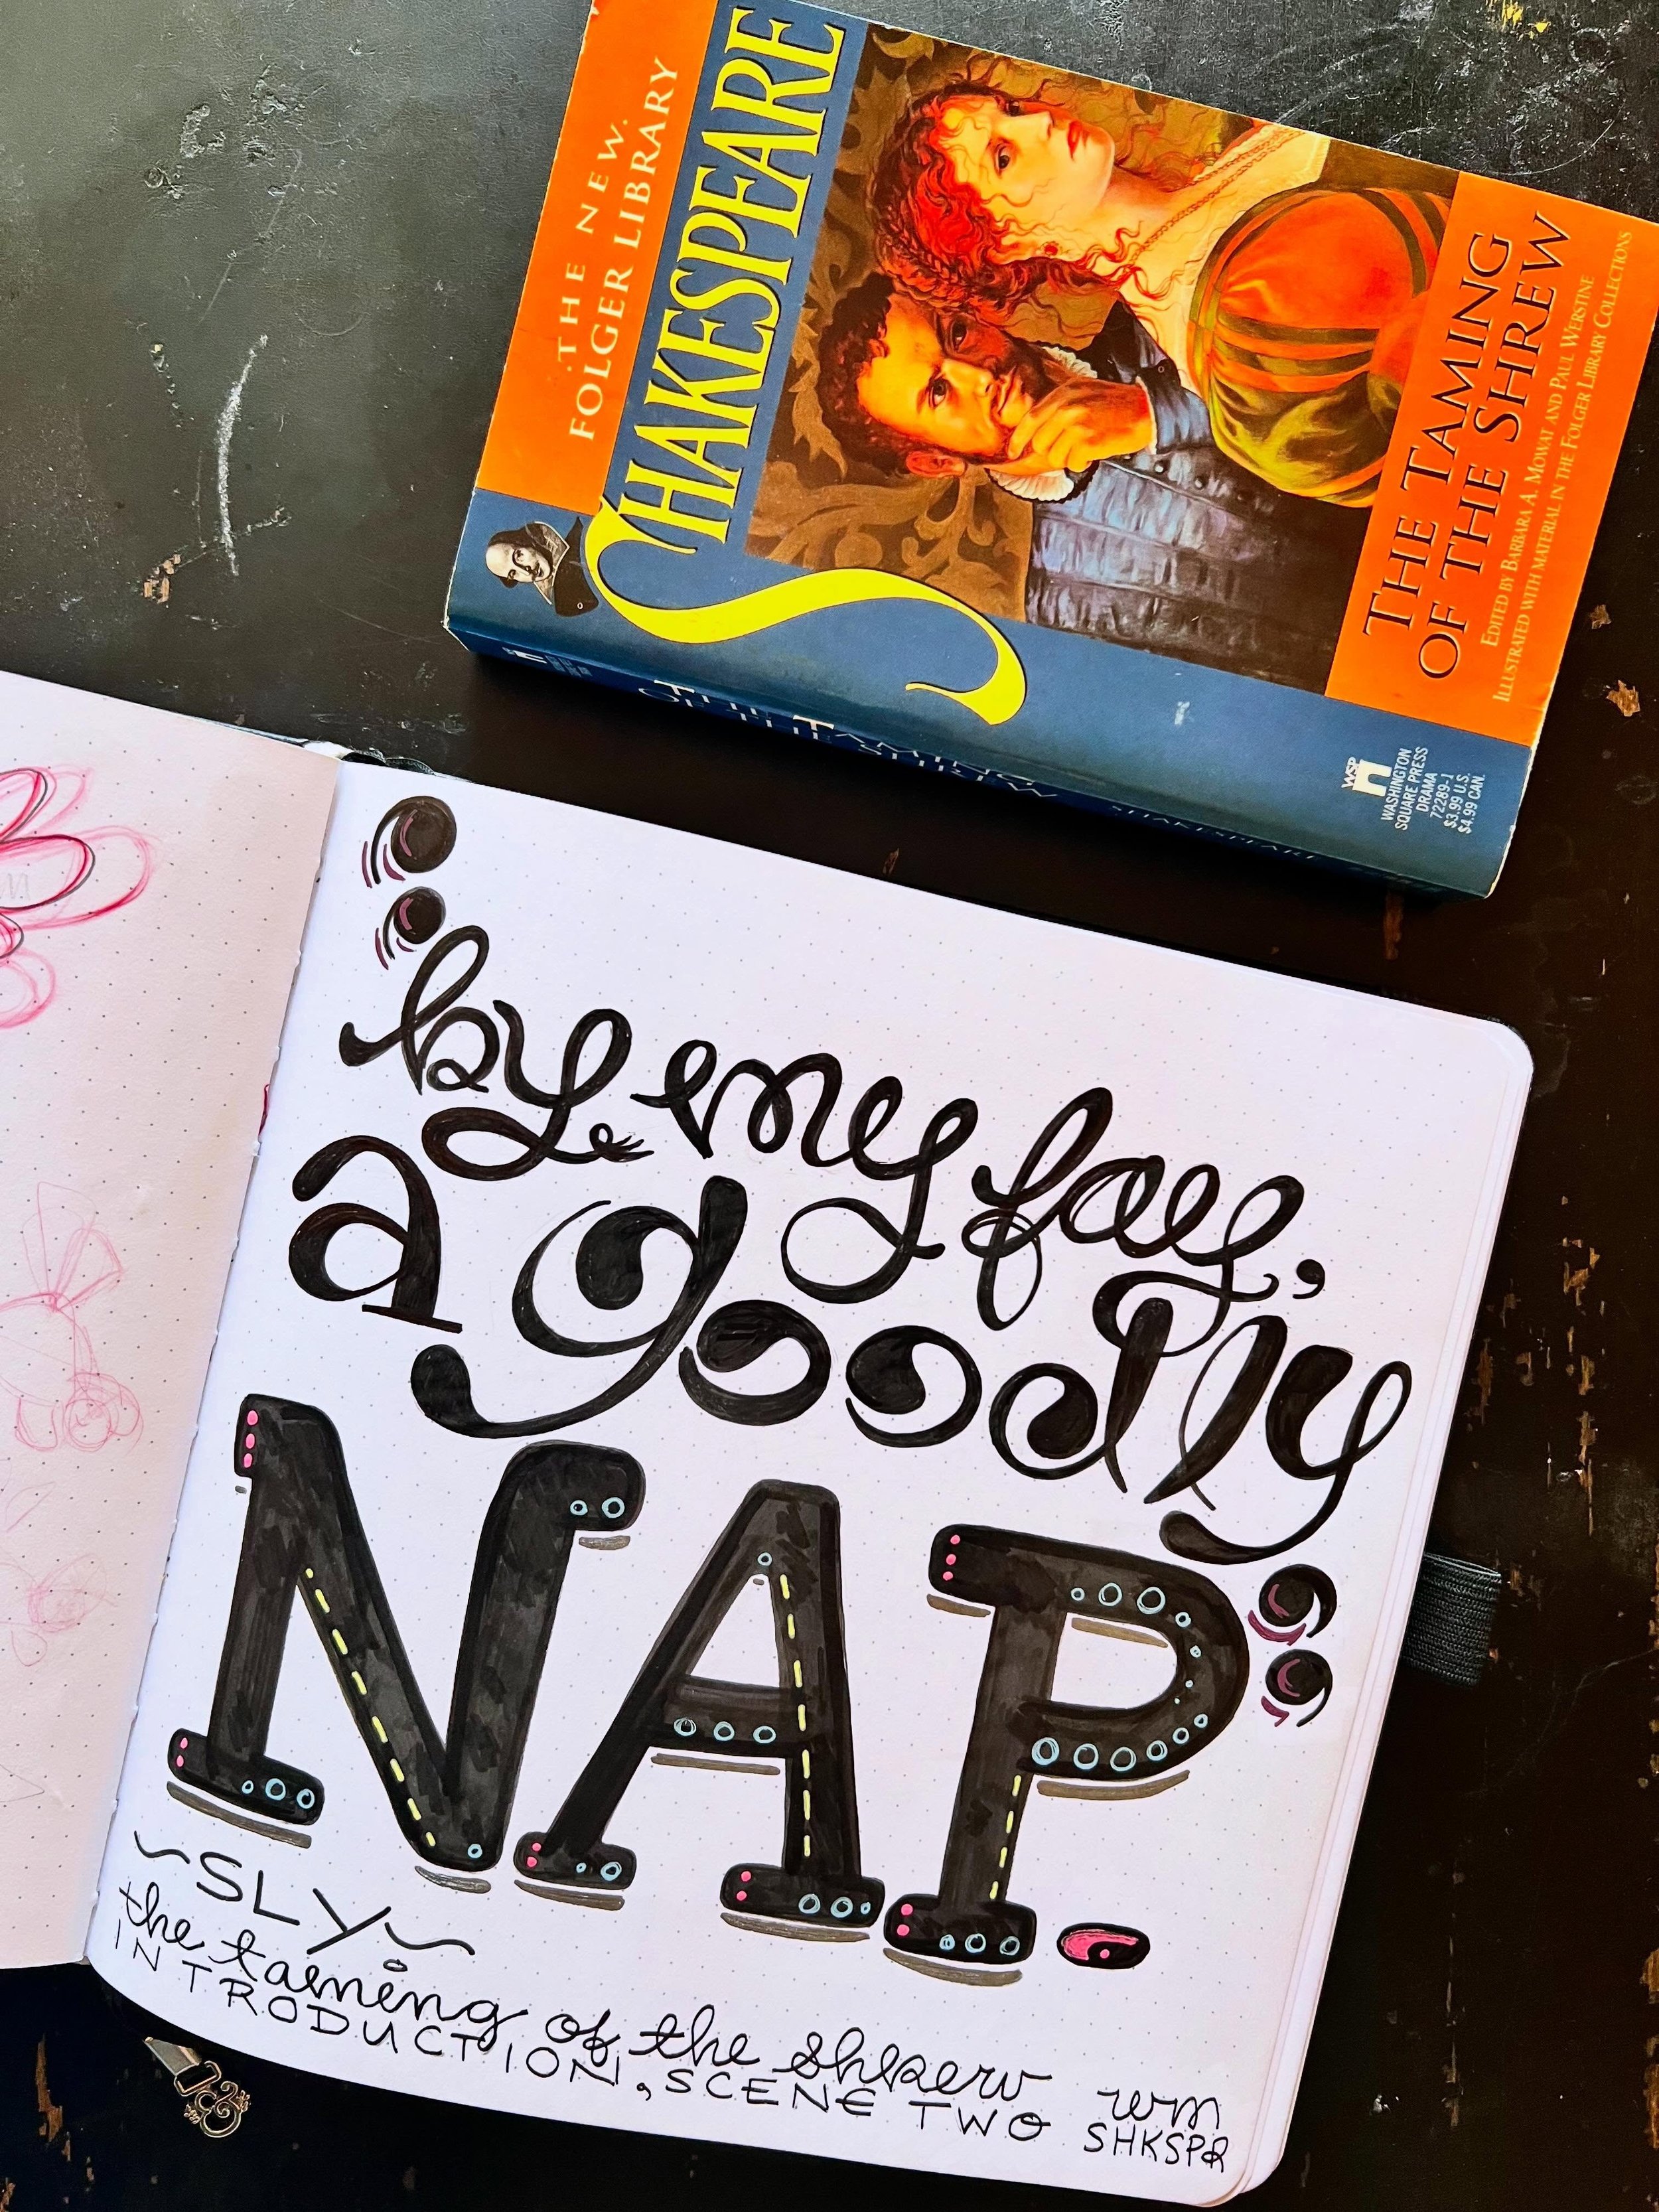 THE NEW
FOLGER LIBRARY
SHAKESPEARE
THE TAMING
OF THE SHREW
EDITED BY BARBARA A. MOWAT AND PAUL WERSTINE
ILLUSTRATED WITH MATERIAL IN THE FOLGER LIBRARY COLLECTIONS
THE TAMING
OF THE SHREW
SHAKESPEARE
WSP
WASHINGTON
SQUARE PRESS
DRAMA
72289-1
$3.99 U.S.
$4.99 CAN.
“by my fay,
a goodly
NAP.”
~SLY~
the taming of the shrew
INTRODUCTION, SCENE TWO
wm
SHKSPR